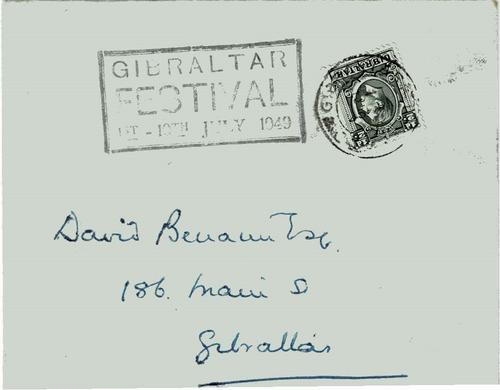 GIBRALTAR
FESTIVAL
1ST - 10TH JULY 1949
GIBRALTAR
David Benaim Esq.
186. Main S
Gibraltar